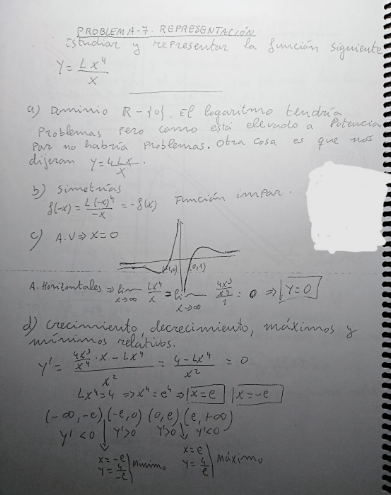 PROBLEMA-7. REPRESENTACIÓN
Estudiar y representar la función siguiente
Y = Lx⁴/x
a) Dominio ℝ-{0}. El logaritmo tendría
problemas pero como está elevado a potencia
par no habría problemas. Otra cosa es que nos
dijeran y=4Lx/x.
b) Simetrías
f(-x)=L(-x)⁴/-x = -f(x) Función impar.
c) A.V ⇒ x=0
A. Horizontales ⇒ lim x→∞ Lx⁴/x = lim x→∞ 4x³/x⁴/1 = 0 ⇒ Y=0
d) Crecimiento, decrecimiento, máximos y
mínimos relativos.
Y' = (4x³/x⁴ · x - Lx⁴)/x² = (4-Lx⁴)/x² = 0
Lx⁴=4 ⇒ x⁴=e⁴ ⇒ x=e x=-e
(-∞,-e) (-e,0) (0,e) (e,+∞)
Y'<0 Y'>0 Y'>0 Y'<0
x=-e x=e
y=4/-e Mínimo y=4/e Máximo